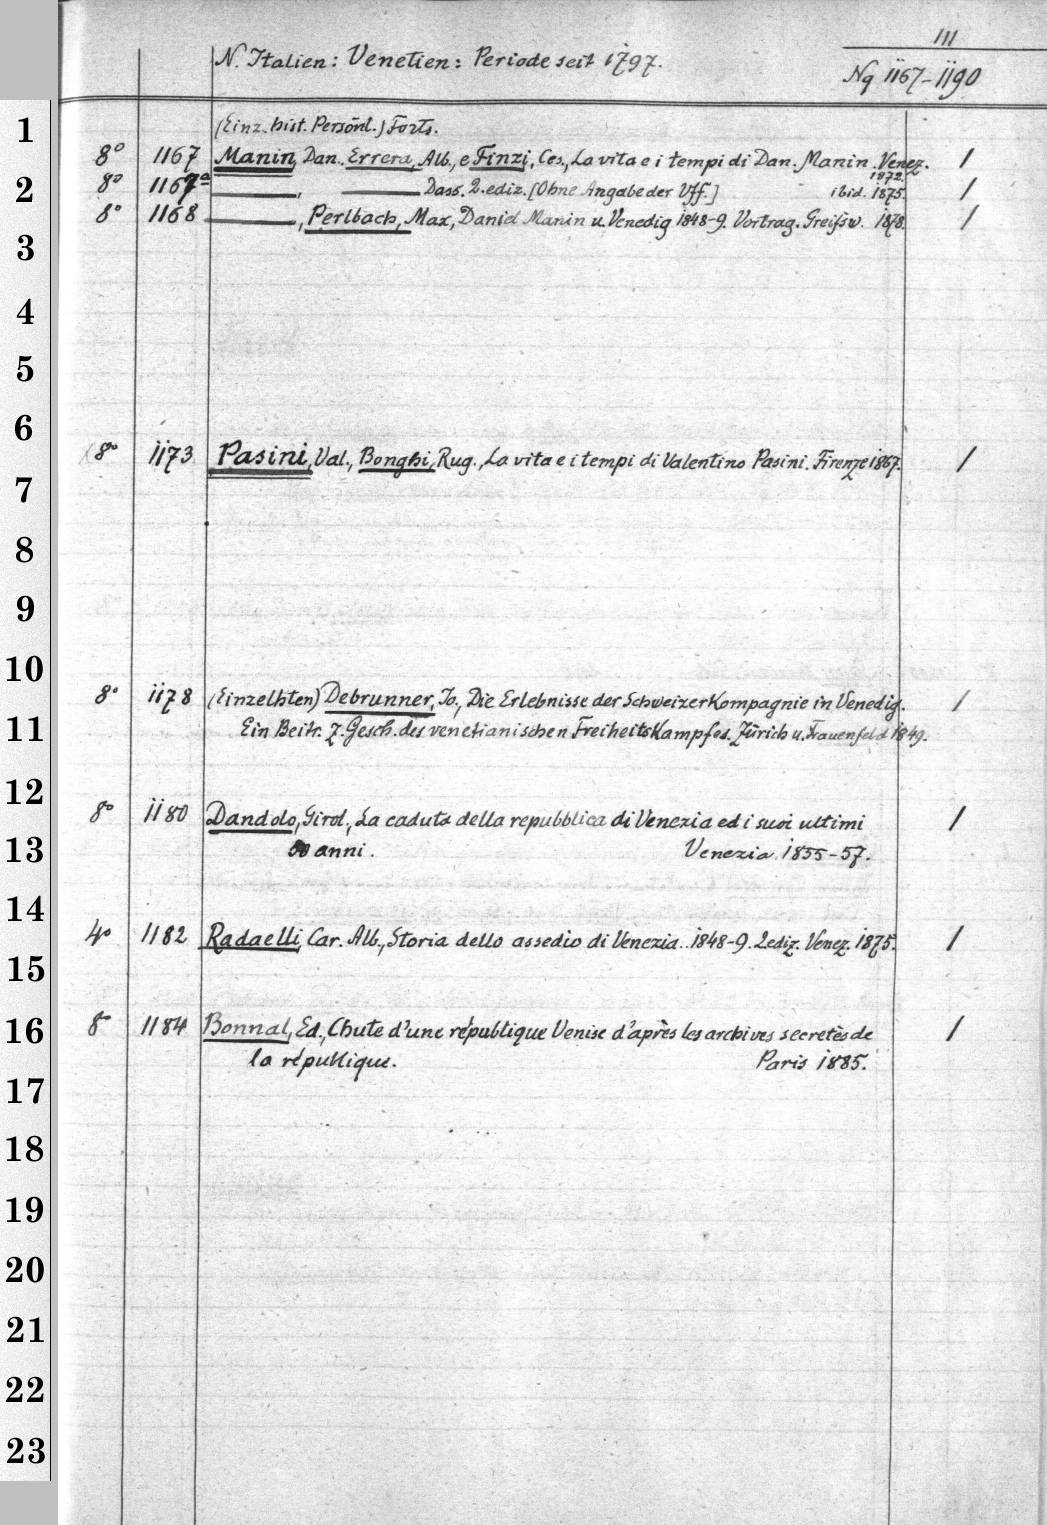 111
N. Italien: Venetien: Periode seit 1797.
Nq 1167-1190
1
(Einz. hist. Persönl.) Forts.
8° 1167 Manin, Dan., Errera, Alb., e Finzi, Ces., La vita e i tempi di Dan. Manin. Venez. /
1872.
2
8° 1167a ———, ——— Dass. 2. ediz. [Ohne Angabe der Vff.] ibid. 1875. /
8° 1168 ———, Perlbach, Max, Daniel Manin u. Venedig 1848-9. Vortrag. Greifsw. 1878. /
3
4
5
6
8° 1173 Pasini, Val., Bonghi, Rug., La vita e i tempi di Valentino Pasini. Firenze 1867. /
7
8
9
10
8° 1178 (Einzelhten) Debrunner, Jo., Die Erlebnisse der Schweizerkompagnie in Venedig. /
11
Ein Beitr. z. Gesch. des venetianischen Freiheitskampfes. Zürich u. Frauenfeld 1849.
12
8° 1180 Dandolo, Girol., La caduta della repubblica di Venezia ed i suoi ultimi /
13
50 anni. Venezia 1855-57.
14
4° 1182 Radaelli, Car. Alb., Storia dello assedio di Venezia. 1848-9. 2 ediz. Venez. 1875. /
15
16
8° 1184 Bonnal, Ed., Chute d'une république Venise d'après les archives secretès de /
la république. Paris 1885.
17
18
19
20
21
22
23